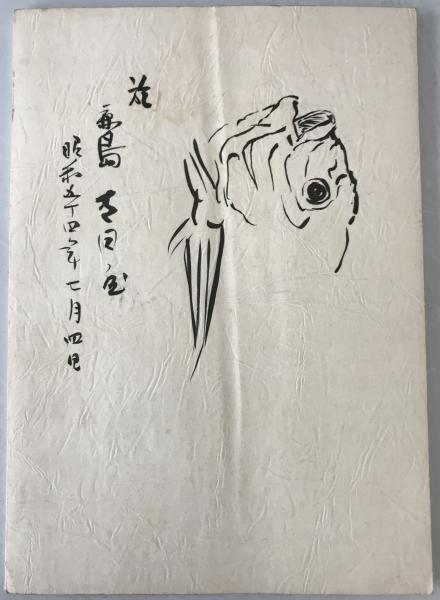 於
島 吉田屋
昭和五十四年七月四日